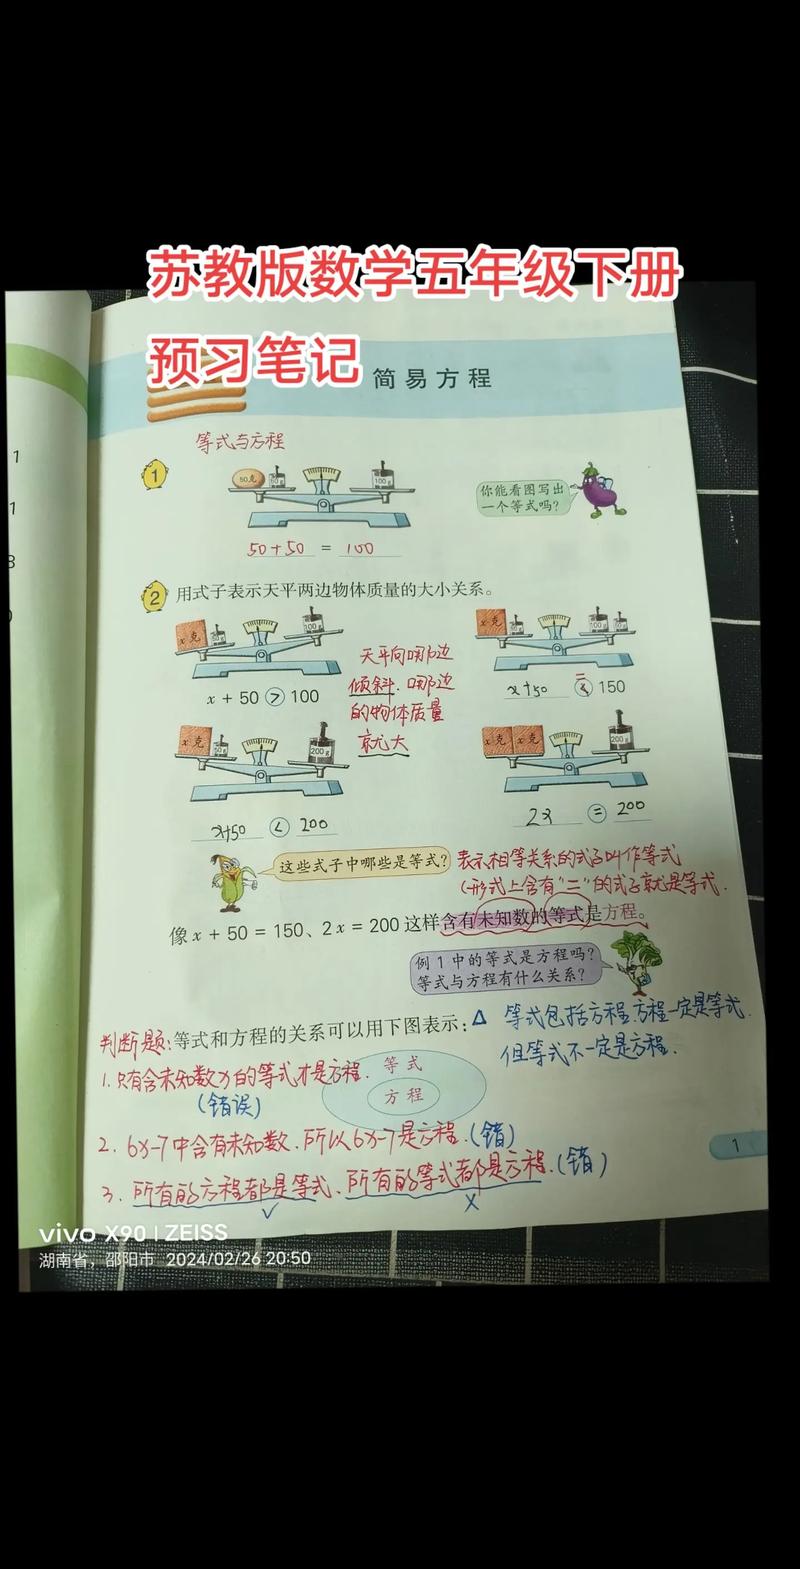 苏教版数学五年级下册
预习笔记
简易方程
等式与方程
1
50克 50g 100g
你能看图写出
一个等式吗?
50+50 = 100
2 用式子表示天平两边物体质量的大小关系。
x克 50g 100g
x克 50g 100g 50g
天平向哪边
倾斜.哪边
的物体质量
就大
x + 50 > 100
x+50 = 150
x克 50g 200g
x克 x克 200g
x+50 < 200
2x = 200
这些式子中哪些是等式?
表示相等关系的式子叫作等式
(形式上含有"="的式子就是等式.
像 x + 50 = 150、2x = 200 这样含有未知数的等式是方程。
例 1 中的等式是方程吗?
等式与方程有什么关系?
判断题:
等式和方程的关系可以用下图表示:
△ 等式包括方程,方程一定是等式.
但等式不一定是方程.
等式
方程
1.只有含未知数x的等式才是方程.
(错误)
2. 6x-7中含有未知数.所以6x-7是方程.(错)
3. 所有的方程都是等式.所有的等式都是方程.(错)
√ ×
1
vivo X90 | ZEISS
湖南省，邵阳市 2024/02/26 20:50